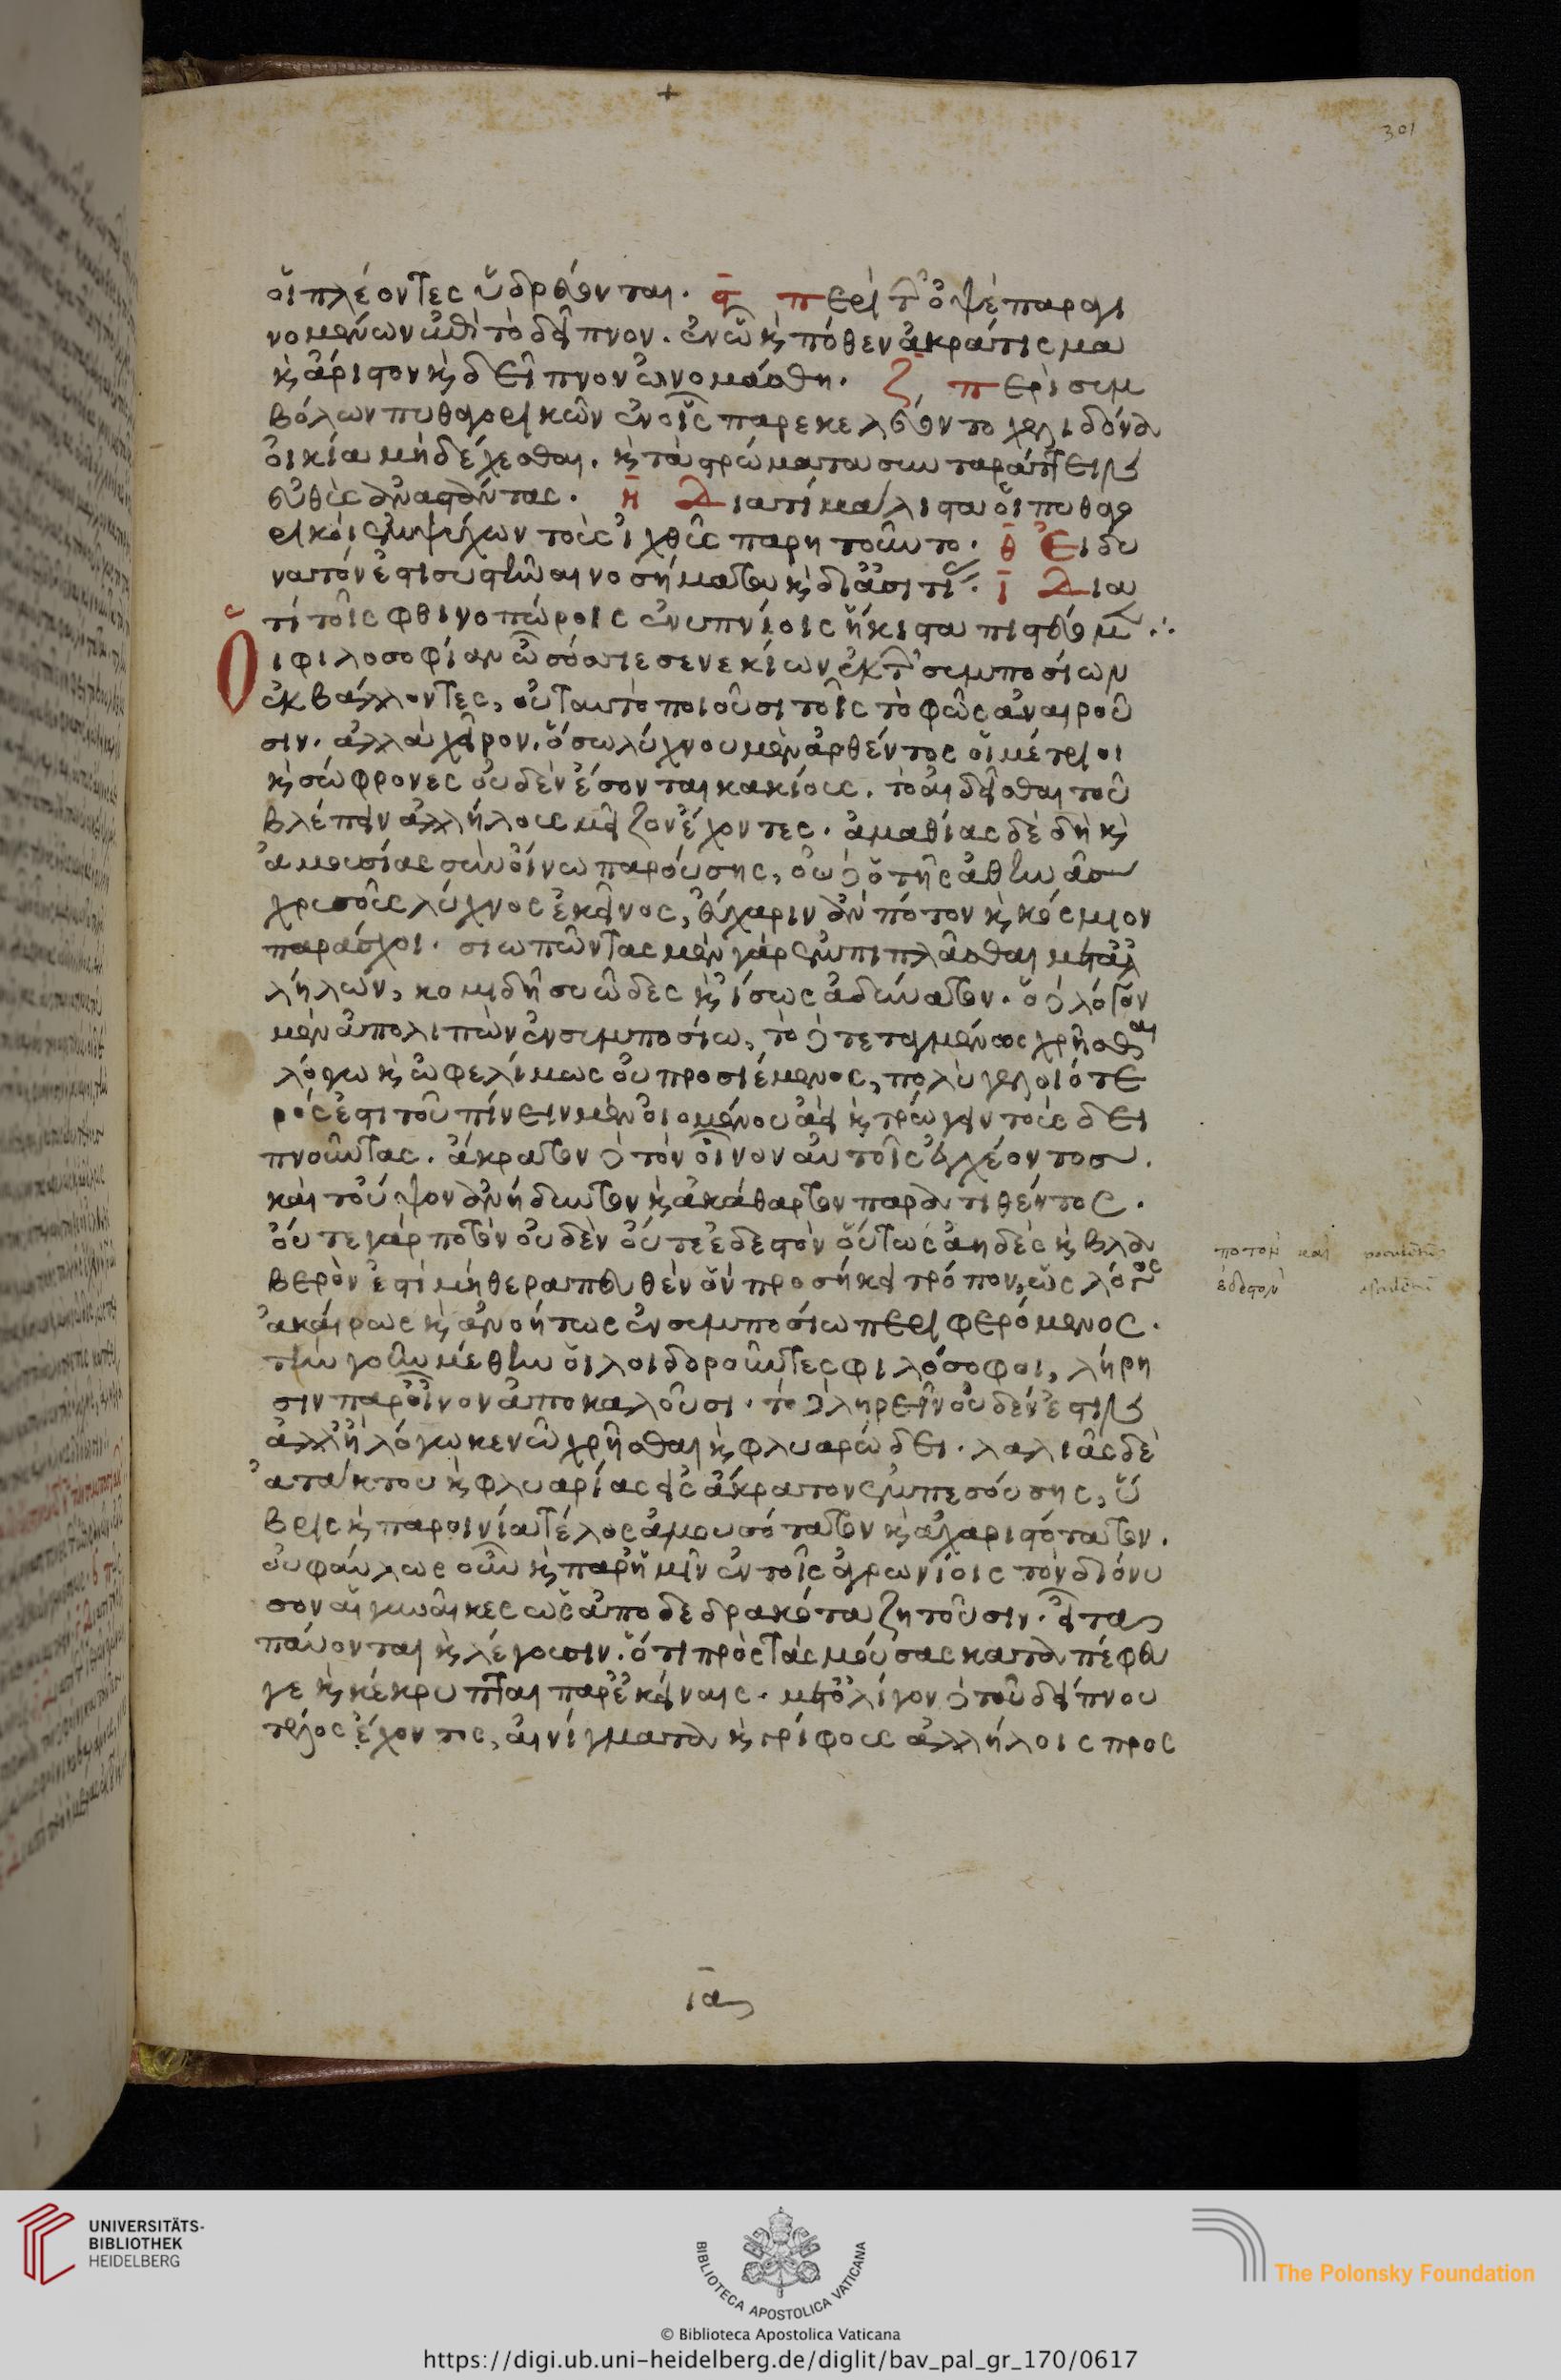 οἱ πλέοντες ὑδρεύονται. ϛ̄ περὶ τῶν ὀψὲ παραγι
νομένων ἐπὶ τὸ δεῖπνον. ἐν ὧ καὶ πόθεν ἀκράτισμα
καὶ ἄριστον καὶ δεῖπνον ὠνομάσθη. ζ̄, περὶ συμ
βόλων πυθαγορικῶν ἐν οἷς παρεκελεύοντο χελιδόνα
οἰκία μὴ δέχεσθαι. καὶ τὰ στρώματα συνταράττειν
εὐθὺς ἀναστάντας. η̄ Διατί μάλιστα οἱ πυθαγο
ρικοὶ ἐμψύχων τοὺς ἰχθῦς παρητοῦντο. θ̄ Εἰ δυ
νατόν ἐστι συστῆναι νοσήματα καὶ δι' ἃς αἰτίας. ῑ Δια
τί τοῖς φθινοπώροις ἐνυπνίοις ἥκιστα πιστεύομεν ∴
Οἱ φιλοσοφίαν ὦ σόσσιε σενεκίων ἐκ τῶν συμποσίων
ἐκβάλλοντες, οὐ ταυτὸ ποιοῦσι τοῖς τὸ φῶς ἀναιροῦ
σιν. ἀλλὰ χεῖρον. ὅσω λύχνου μὲν ἀρθέντος οἱ μέτριοι
καὶ σώφρονες οὐδὲν ἔσονται κακίους. τὸ αἰδεῖσθαι τοῦ
βλέπειν ἀλλήλους μεῖζον ἔχοντες. ἀμαθίας δὲ δὴ καὶ
ἀμουσίας σὺν οἴνω παρούσης, οὐδ' ὁ τῆς ἀθηνᾶς
χρυσοῦς λύχνος ἐκεῖνος, εὔχαριν ἂν πότον καὶ κόσμιον
παράσχοι. σιωπῶντας μὲν γὰρ ἐμπίπλασθαι μετ' ἀλ
λήλων, κομιδῆ συῶδες καὶ ἴσως ἀδύνατον. ὁ δὲ λόγον
μὲν ἀπολιπὼν ἐν συμποσίω, τὸ δὲ τεταγμένως χρῆσθαι
λόγω καὶ ὠφελίμως οὐ προσιέμενος, πολὺ γελοιότε
ρός ἐστι τοῦ πίνειν μὲν οἰομένου ἀεὶ καὶ τρώγειν τοὺς δει
πνοῦντας. ἄκρατον δὲ τὸν οἶνον αὐτοῖς ἐγχέοντος.
καὶ τοὖψον ἀνήδυντον καὶ ἀκάθαρτον παρατιθέντος.
οὔτε γὰρ ποτὸν οὐδὲν οὔτε ἐδεστὸν οὕτως ἀηδὲς καὶ βλα
βερόν ἐστι μὴ θεραπευθὲν ὃν προσήκει τρόπον, ὡς λόγος
ἀκαίρως καὶ ἀνοήτως ἐν συμποσίω περιφερόμενος.
τὴν γοῦν μέθην οἱ λοιδοροῦντες φιλόσοφοι, λήρη
σιν πάροινον ἀποκαλοῦσι. τὸ δὲ ληρεῖν οὐδέν ἐστιν
ἀλλ' ἢ λόγω κενῶ χρῆσθαι καὶ φλυαρώδει. λαλιᾶς δὲ
ἀτάκτου καὶ φλυαρίας εἰς ἄκρατον ἐμπεσούσης, ὕ
βρις καὶ παροινία τέλος ἀμουσότατον καὶ ἀχαριστότατον.
οὐ φαύλως οὖν καὶ παρ' ἡμῖν ἐν τοῖς ἀγρωνίοις τὸν διόνυ
σον αἱ γυναῖκες ὡς ἀποδεδρακότα ζητοῦσιν. εἶτα
παύονται καὶ λέγουσιν. ὅτι πρὸς τὰς μούσας καταπέφευ
γε καὶ κέκρυπται παρ' ἐκείναις. μετ' ὀλίγον δὲ τοῦ δείπνου
τέλος ἔχοντος, αἰνίγματα καὶ γρίφους ἀλλήλοις προς
ποτὸν καὶ
ἐδεστὸν
301
ια
UNIVERSITÄTS-
BIBLIOTHEK
HEIDELBERG
BIBLIOTECA APOSTOLICA VATICANA
The Polonsky Foundation
© Biblioteca Apostolica Vaticana
https://digi.ub.uni-heidelberg.de/diglit/bav_pal_gr_170/0617